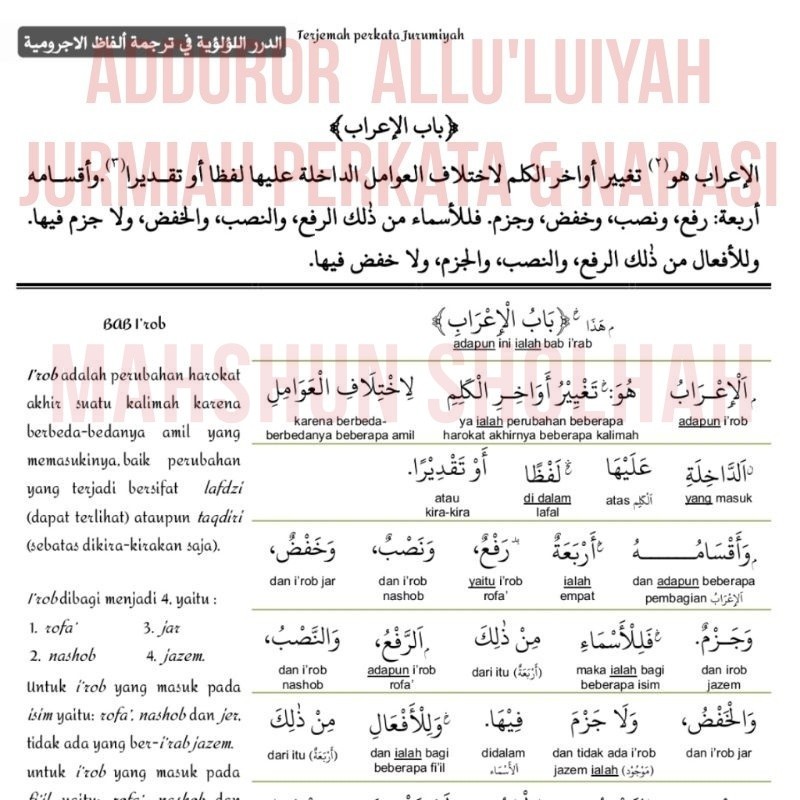 الدرر اللؤلؤية في ترجمة ألفاظ الاجرومية
Terjemah perkata Jurumiyah
ADDUROR ALLU'LUIYAH
﴿باب الإعراب﴾
JURMIAH PERKATA & NARASI
الإعراب هو(٢) تغيير أواخر الكلم لاختلاف العوامل الداخلة عليها لفظا أو تقـديرا(٣). وأقسـامه
أربعة: رفع، ونصب، وخفض، وجزم. فللأسماء من ذٰلك الرفع، والنصب، والخفض، ولا جزم فيها.
وللأفعال من ذٰلك الرفع، والنصب، والجزم، ولا خفض فيها.
BAB I'rob
I'rob adalah perubahan harokat
akhir suatu kalimah karena
berbeda-bedanya amil yang
memasukinya, baik perubahan
yang terjadi bersifat lafdzi
(dapat terlihat) ataupun taqdiri
(sebatas dikira-kirakan saja).
I'rob dibagi menjadi 4, yaitu :
1. rofa' 3. jar
2. nashob 4. jazem.
Untuk i'rob yang masuk pada
isim yaitu: rofa', nashob dan jer,
tidak ada yang ber-i'rab jazem.
untuk i'rob yang masuk pada
fi'il yaitu: rofa', nashob dan
م هَذَا خ ﴿بَابُ الْإِعْرَابِ﴾
adapun ini ialah bab i'rab
MAHSHUN SHOLHAH
م اَلْإِعْرَابُ هُوَ: خ تَغْيِيْرُ أَوَاخِرِ الْكَلِمِ لِاخْتِلَافِ الْعَوَامِلِ
adapun i'rob ya ialah perubahan beberapa karena berbeda-
harokat akhirnya beberapa kalimah berbedanya beberapa amil
اَلدَّاخِلَةِ عَلَيْهَا لَفْظًا أَوْ تَقْدِيْرًا.
yang masuk atas اَلْكَلِم di dalam atau
lafal kira-kira
م وَأَقْسَامُـــــهُ خ أَرْبَعَةٌ رَفْعٌ، وَنَصْبٌ، وَخَفْضٌ،
dan adapun beberapa ialah yaitu i'rob dan i'rob dan i'rob jar
pembagian اَلْإِعْرَابُ empat rofa' nashob
وَجَزْمٌ. خ فَلِلْأَسْمَاءِ مِنْ ذٰلِكَ م اَلرَّفْعُ، وَالنَّصْبُ،
dan irob maka ialah bagi dari itu (أَرْبَعَةُ) adapun i'rob dan i'rob
jazem beberapa isim rofa' nashob
وَالْخَفْضُ، وَلَا جَزْمَ فِيْهَا. خ وَلِلْأَفْعَالِ مِنْ ذٰلِكَ
dan i'rob jar dan tidak ada i'rob didalam dan ialah bagi dari itu (أَرْبَعَةُ)
jazem ialah (مَوْجُوْدٌ) اَلْأَسْمَاء beberapa fi'il